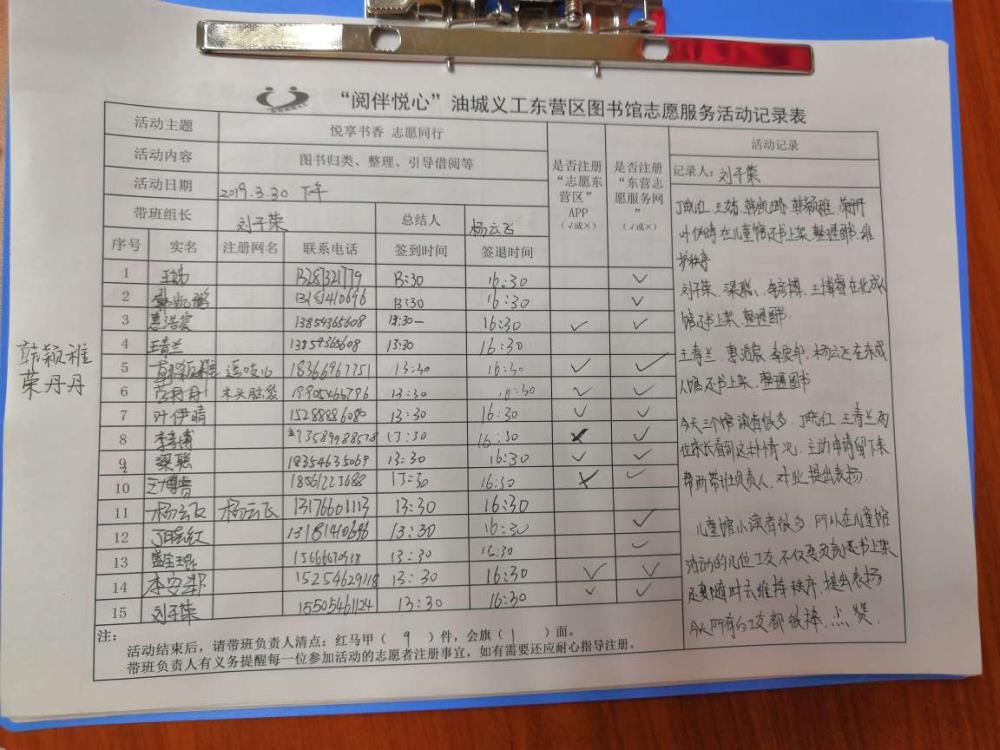 “阅伴悦心”油城义工东营区图书馆志愿服务活动记录表
活动主题 悦享书香 志愿同行
活动内容 图书归类、整理、引导借阅等
活动日期 2019.3.30 下午
带班组长 刘子荣 总结人 杨云飞
是否注册“志愿东营区”APP(√或×)
是否注册“东营志愿服务网”(√或×)
序号 实名 注册网名 联系电话 签到时间 签退时间
1 13:30 16:30 √
2 13181410696 13:30 16:30 √
3 惠浩宸 13854365608 13:30 16:30 √ √
4 王青兰 13854365608 13:30 16:30
5 18366967751 13:30 16:30 √ √
6 木头脑袋 13:30 16:30 √ √
7 叶伊晴 15288886080 13:30 16:30 √ √
8 李彦博 13:30 16:30 × √
9 梁聪 18354635069 13:30 16:30 √ √
10 王博睿 18561223688 13:30 16:30 × √
11 杨云飞 杨云飞 13176601113 13:30 16:30
12 丁晓红 13181410696 13:30 16:30 √
13 13:30 16:30 √
14 李安邦 15254629118 13:30 16:30 √ √
15 刘子荣 15505461124 13:30 16:30 √ √
韩颖雅
荣丹丹
活动记录
记录人:刘子荣
叶伊晴在儿童馆还书上架、整理图书、维
护秩序
刘子荣、梁聪、李彦博、王博睿在北成人
馆还书上架、整理图书
王青兰、惠浩宸、李安邦、杨云飞在东成
人馆还书上架、整理图书
今天三个馆读者很多,丁晓红、王青兰两
位家长看到这种情况,主动申请留下来
帮助带班负责人,对此提出表扬.
儿童馆小读者很多,所以在儿童馆
活动的几位义工不仅要负责还书上架
还要随时去维持秩序,提出表扬
今天所有的义工都很棒,点赞.
注:
活动结束后,请带班负责人清点:红马甲(9)件,会旗(1)面。
带班负责人有义务提醒每一位参加活动的志愿者注册事宜,如有需要还应耐心指导注册。